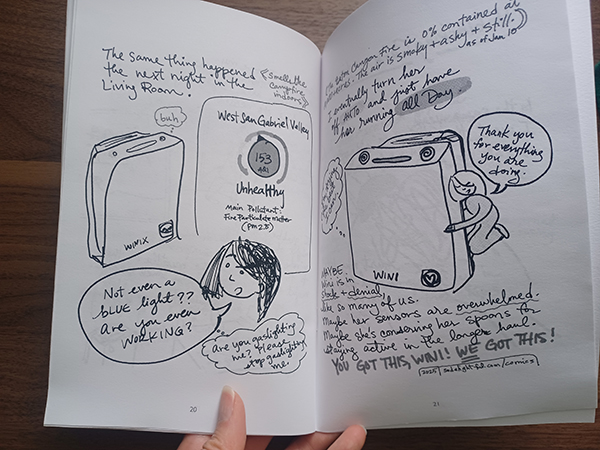 The same thing happened
the next night in the
Living Room.
Smells the
Campfire
indoors
buh
West San Gabriel Valley
153
AQI
Unhealthy
Main Pollutant:
Fine Particulate matter
(PM 2.5)
WINIX
Not even a
BLUE light??
Are you even
WORKING?
Are you gaslighting
me? Please
stop gaslighting
me.
20
Eaton Canyon Fire is 0% contained at
The air is smoky + ashy + still.
As of Jan 10
I eventually turn her
off AUTO and just have
her running all Day.
Thank you
for everything
you are
doing.
WINI
MAYBE
Wini is in
shock + denial
like so many of us.
Maybe her sensors are overwhelmed.
Maybe she's conserving her spoons for
staying active in the longer haul.
YOU GOT THIS, WINI! WE GOT THIS!
2025
21